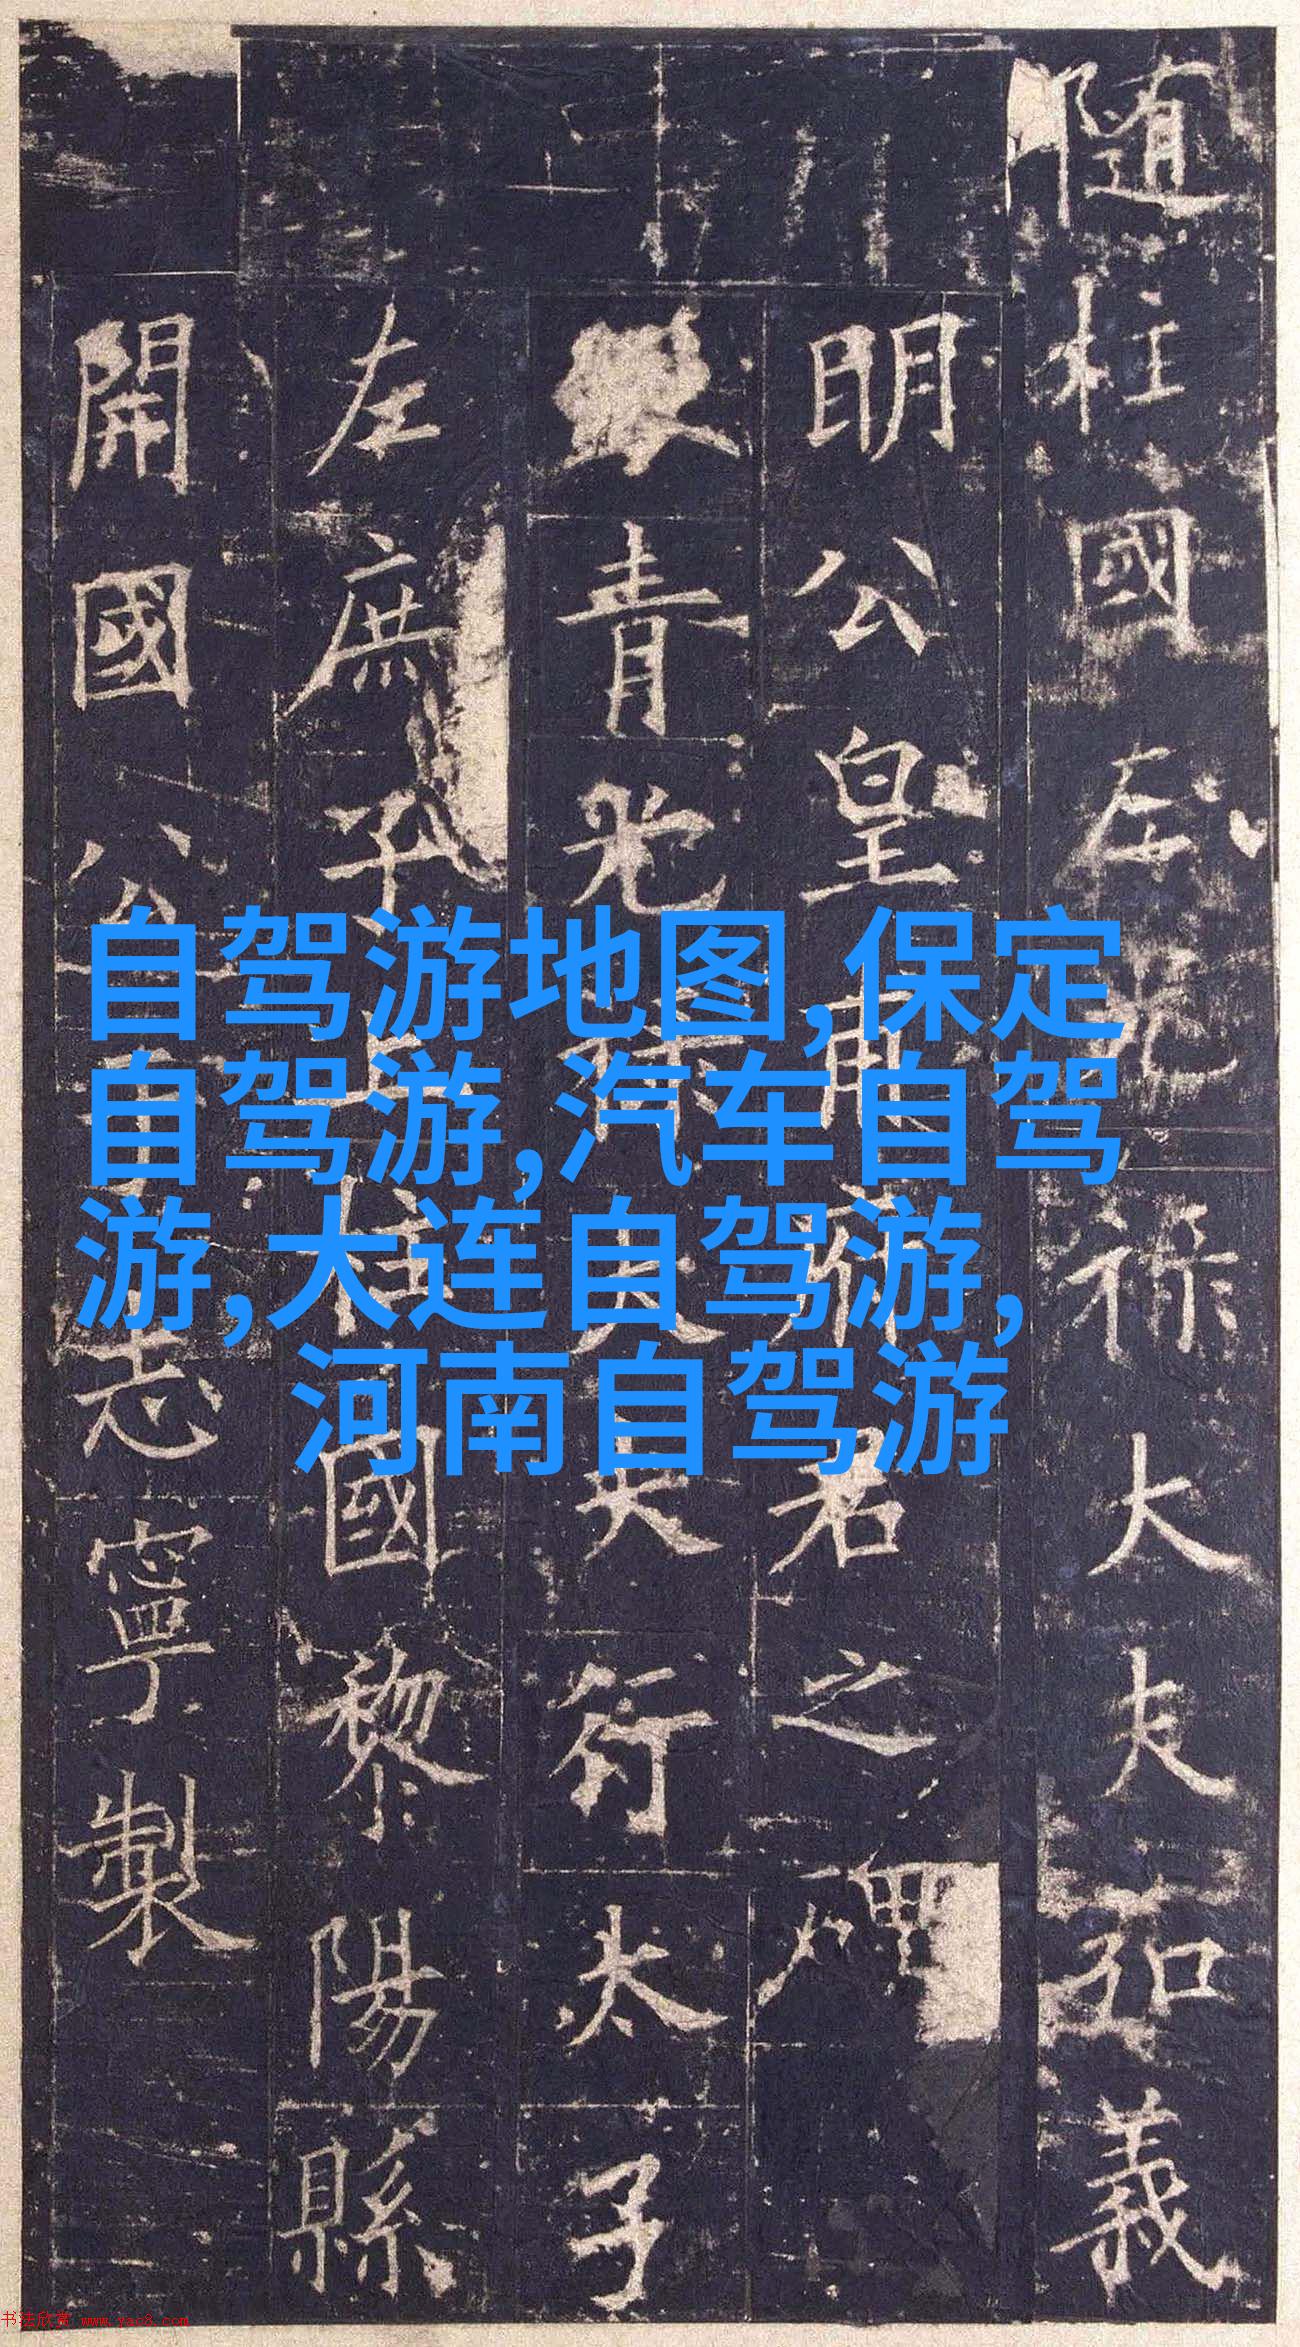 随柱國左光祿大夫弘義
明公皇甫府君之碑
銀青光祿大夫行太子
左庶子上柱國黎陽縣
開國公于志寧製
自驾游地图,保定
自驾游,汽车自驾
游,大连自驾游,
河南自驾游
书法欣赏 www.yac8.com